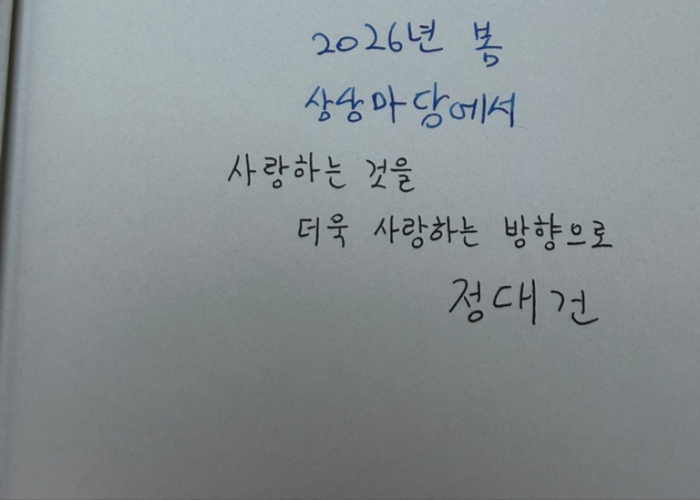 2026년 봄
상상마당에서
사랑하는 것을
더욱 사랑하는 방향으로
정대건